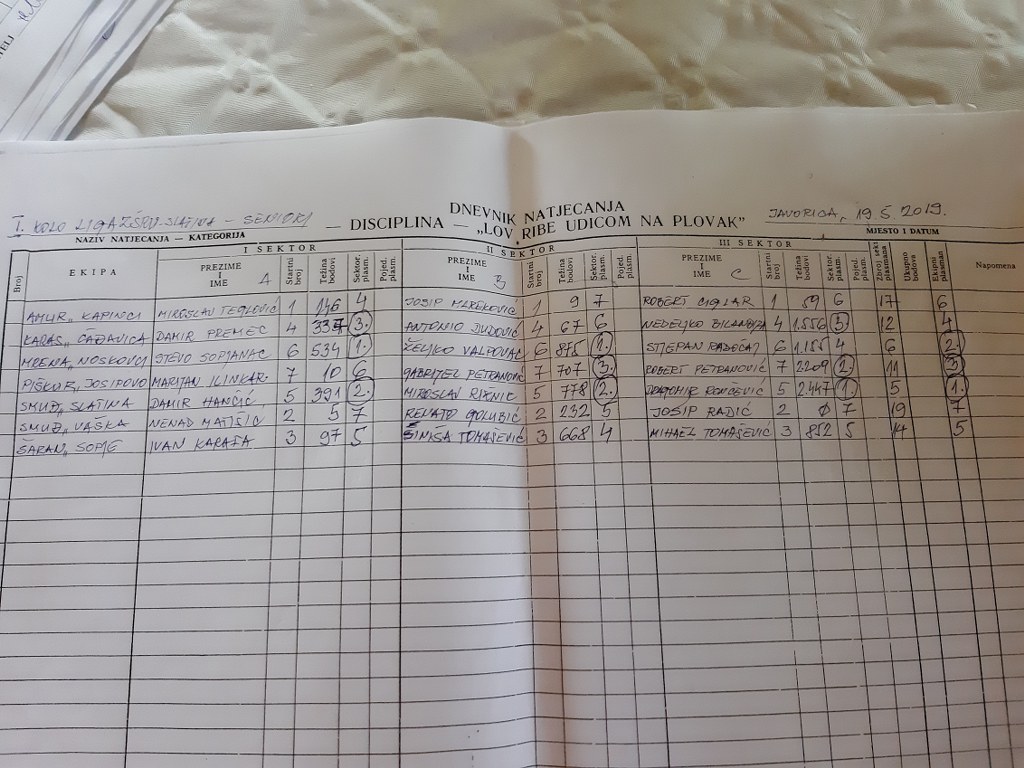 DNEVNIK NATJECANJA
I. KOLO LIGA ZŠRU-SLATINA - SENIORI — DISCIPLINA — „LOV RIBE UDICOM NA PLOVAK” JAVORICA, 19.5.2019.
NAZIV NATJECANJA — KATEGORIJA MJESTO I DATUM
I SEKTOR II SEKTOR III SEKTOR
Broj EKIPA PREZIME I IME A Startni broj Težina bodovi Sektor. plasm. Pojed. plasm. PREZIME I IME B Startni broj Težina bodovi Sektor. plasm. Pojed. plasm. PREZIME I IME C Startni broj Težina bodovi Sektor plasm. Pojed. plasm. Zbroj sekt plasmana Ukupno bodova Ekipni plasman Napomena
AMUR„ KAPINCI MIROSLAV TEGLOVIĆ 1 146 4 JOSIP 1 9 7 ROBERT CIGLAR 1 59 6 17 6
KARAS„ ČAĐAVICA DAMIR PREMEC 4 337 3. ANTONIO DUDOVIĆ 4 67 6 NEDELJKO 4 1.556 3 12 4
MRENA„ NOSKOVCI STEVO SOPJANAC 6 534 1. ŽELJKO VALPOVAC 6 875 1. STJEPAN RADOČAJ 6 1.155 4 6 2.
PIŠKUR„ JOSIPOVO MARIJAN ILINKAR 7 10 6 GABRIJEL PETRANOVIĆ 7 707 3. ROBERT PETRANOVIĆ 7 2209 2. 11 3
SMUĐ„ SLATINA DAMIR HANČIĆ 5 391 2. MIROSLAV 5 778 2. DRAGOMIR 5 2.447 1. 5 1.
SMUĐ„ VAŠKA NENAD MATIŠIĆ 2 5 7 RENATO GOLUBIĆ 2 232 5 JOSIP RADIĆ 2 0 7 19 7
ŠARAN„ SOPJE IVAN 3 97 5 SINIŠA TOMAŠEVIĆ 3 668 4 MIHAEL TOMAŠEVIĆ 3 852 5 14 5